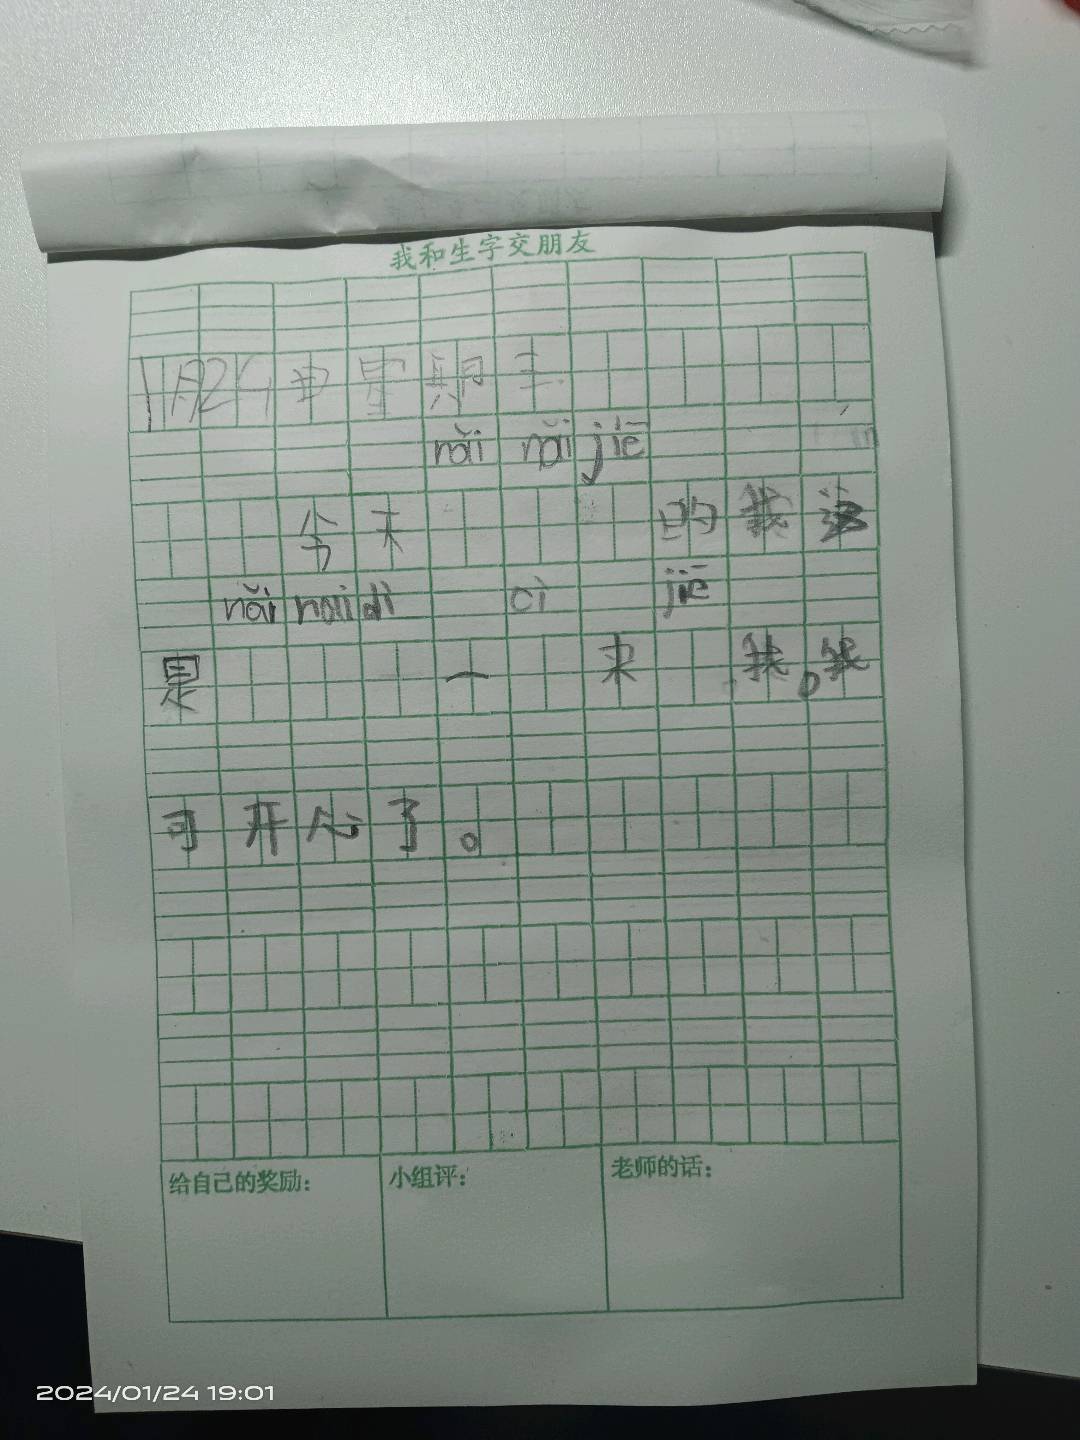 我和生字交朋友
1月24日星期三
nǎi nǎi jiē
今天 的我 这
nǎi nai dì cì jiē
是 一 来 我。我
可开心了。
给自己的奖励: 小组评: 老师的话:
2024/01/24 19:01